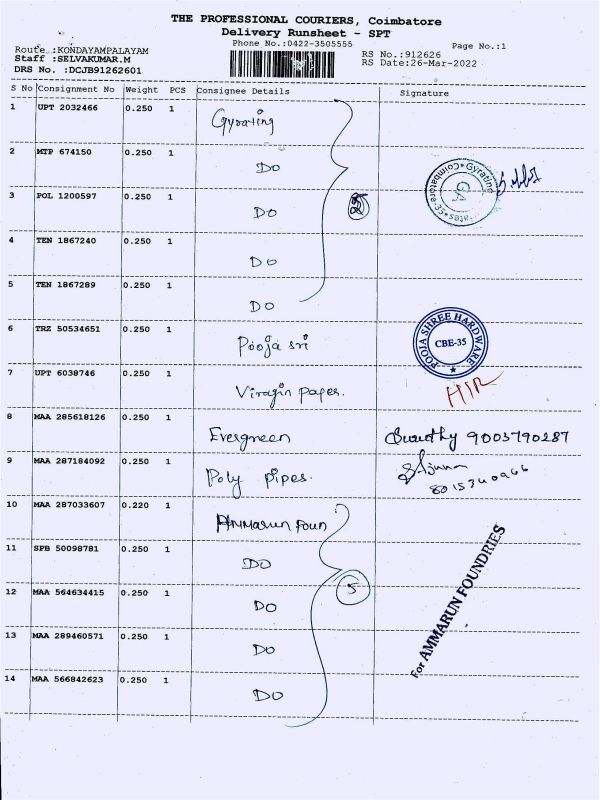 THE PROFESSIONAL COURIERS, Coimbatore
Delivery Runsheet - SPT
Phone No.:0422-3505555
Page No.:1
Route :KONDAYAMPALAYAM
RS No.:912626
Staff :SELVAKUMAR.M
RS Date:26-Mar-2022
DRS No. :DCJB91262601
S No Consignment No Weight PCS Consignee Details Signature
1 UPT 2032466 0.250 1 Gyrating
2 MTP 674150 0.250 1 DO
3 POL 1200597 0.250 1 DO 5
Coimbatore-35 Gyrating
4 TEN 1867240 0.250 1 DO
5 TEN 1867289 0.250 1 DO
6 TRZ 50534651 0.250 1 Pooja sri
POOJA SHREE HARDWARE
CBE-35
7 UPT 6038746 0.250 1 Viragin paper.
8 MAA 285618126 0.250 1 Evergreen 9003790287
9 MAA 287184092 0.250 1 Poly pipes.
8015340966
10 MAA 287033607 0.220 1 Ammarun Foun
11 SPB 50098781 0.250 1 DO
12 MAA 564634415 0.250 1 DO 5
For AMMARUN FOUNDRIES
13 MAA 289460571 0.250 1 DO
14 MAA 566842623 0.250 1 DO